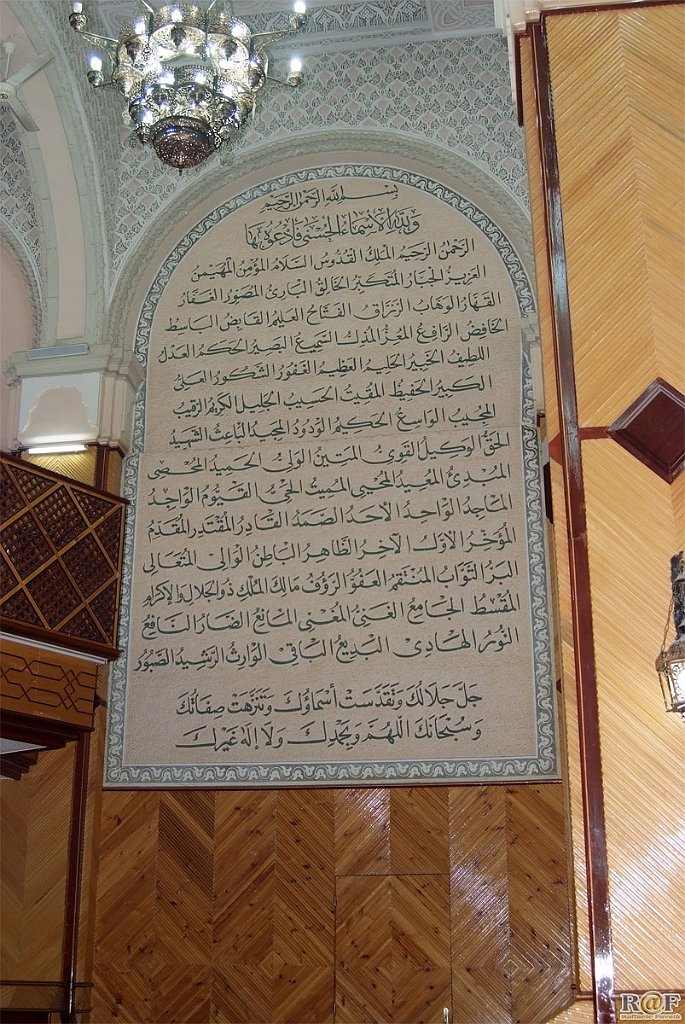 بسم الله الرحمن الرحيم
ولله الأسماء الحسنى فادعوه بها
الرحمن الرحيم الملك القدوس السلام المؤمن المهيمن
العزيز الجبار المتكبر الخالق البارئ المصور الغفار
القهار الوهاب الرزاق الفتاح العليم القابض الباسط
الخافض الرافع المعز المذل السميع البصير الحكم العدل
اللطيف الخبير الحليم العظيم الغفور الشكور العلي
الكبير الحفيظ المقيت الحسيب الجليل الكريم الرقيب
المجيب الواسع الحكيم الودود المجيد الباعث الشهيد
الحق الوكيل القوي المتين الولي الحميد المحصي
المبدئ المعيد المحيي المميت الحي القيوم الواجد
الماجد الواحد الأحد الصمد القادر المقتدر المقدم
المؤخر الأول الآخر الظاهر الباطن الوالي المتعالي
البر التواب المنتقم العفو الرؤوف مالك الملك ذو الجلال والإكرام
المقسط الجامع الغني المغني المانع الضار النافع
النور الهادي البديع الباقي الوارث الرشيد الصبور
جل جلالك وتقدست أسماؤك وتنزهت صفاتك
وسبحانك اللهم وبحمدك ولا إله غيرك
R@F